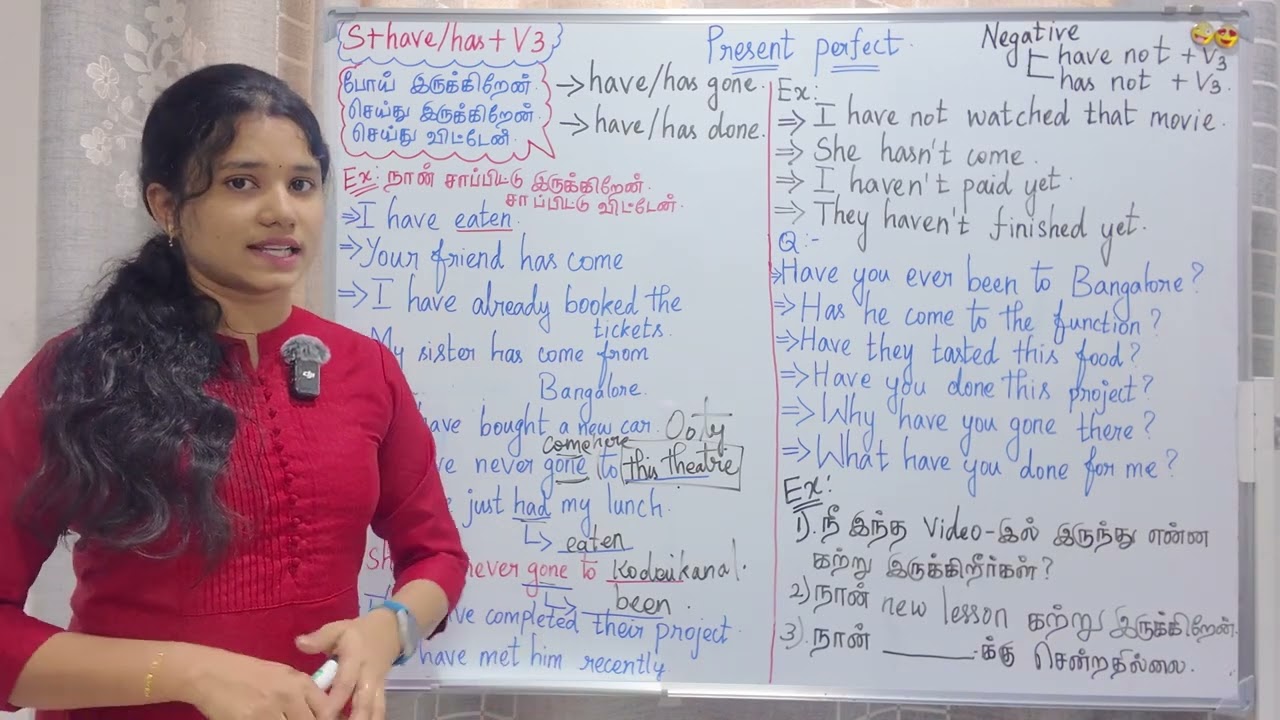 S+have/has+V3
Present perfect.
போய் இருக்கிறேன்.
செய்து இருக்கிறேன்.
செய்து விட்டேன்.
→ have/has gone.
→ have/has done.
Ex: நான் சாப்பிட்டு இருக்கிறேன்.
சாப்பிட்டு விட்டேன்.
⇒ I have eaten.
⇒ Your friend has come
⇒ I have already booked the
tickets.
My sister has come from
Bangalore.
have bought a new car. Ooty
come here
never gone to this theatre
just had my lunch.
↳ eaten
never gone to Kodaikanal.
↳ been.
have completed their project.
have met him recently
Negative
have not + V3
has not + V3.
Ex:
⇒ I have not watched that movie.
⇒ She hasn't come.
⇒ I haven't paid yet.
⇒ They haven't finished yet.
Q:-
⇒ Have you ever been to Bangalore?
⇒ Has he come to the function?
⇒ Have they tasted this food?
⇒ Have you done this project?
⇒ Why have you gone there?
⇒ What have you done for me?
Ex:
1). நீ இந்த video-இல் இருந்து என்ன
கற்று இருக்கிறீர்கள்?
2) நான் new lesson கற்று இருக்கிறேன்.
3). நான் ______க்கு சென்றதில்லை.